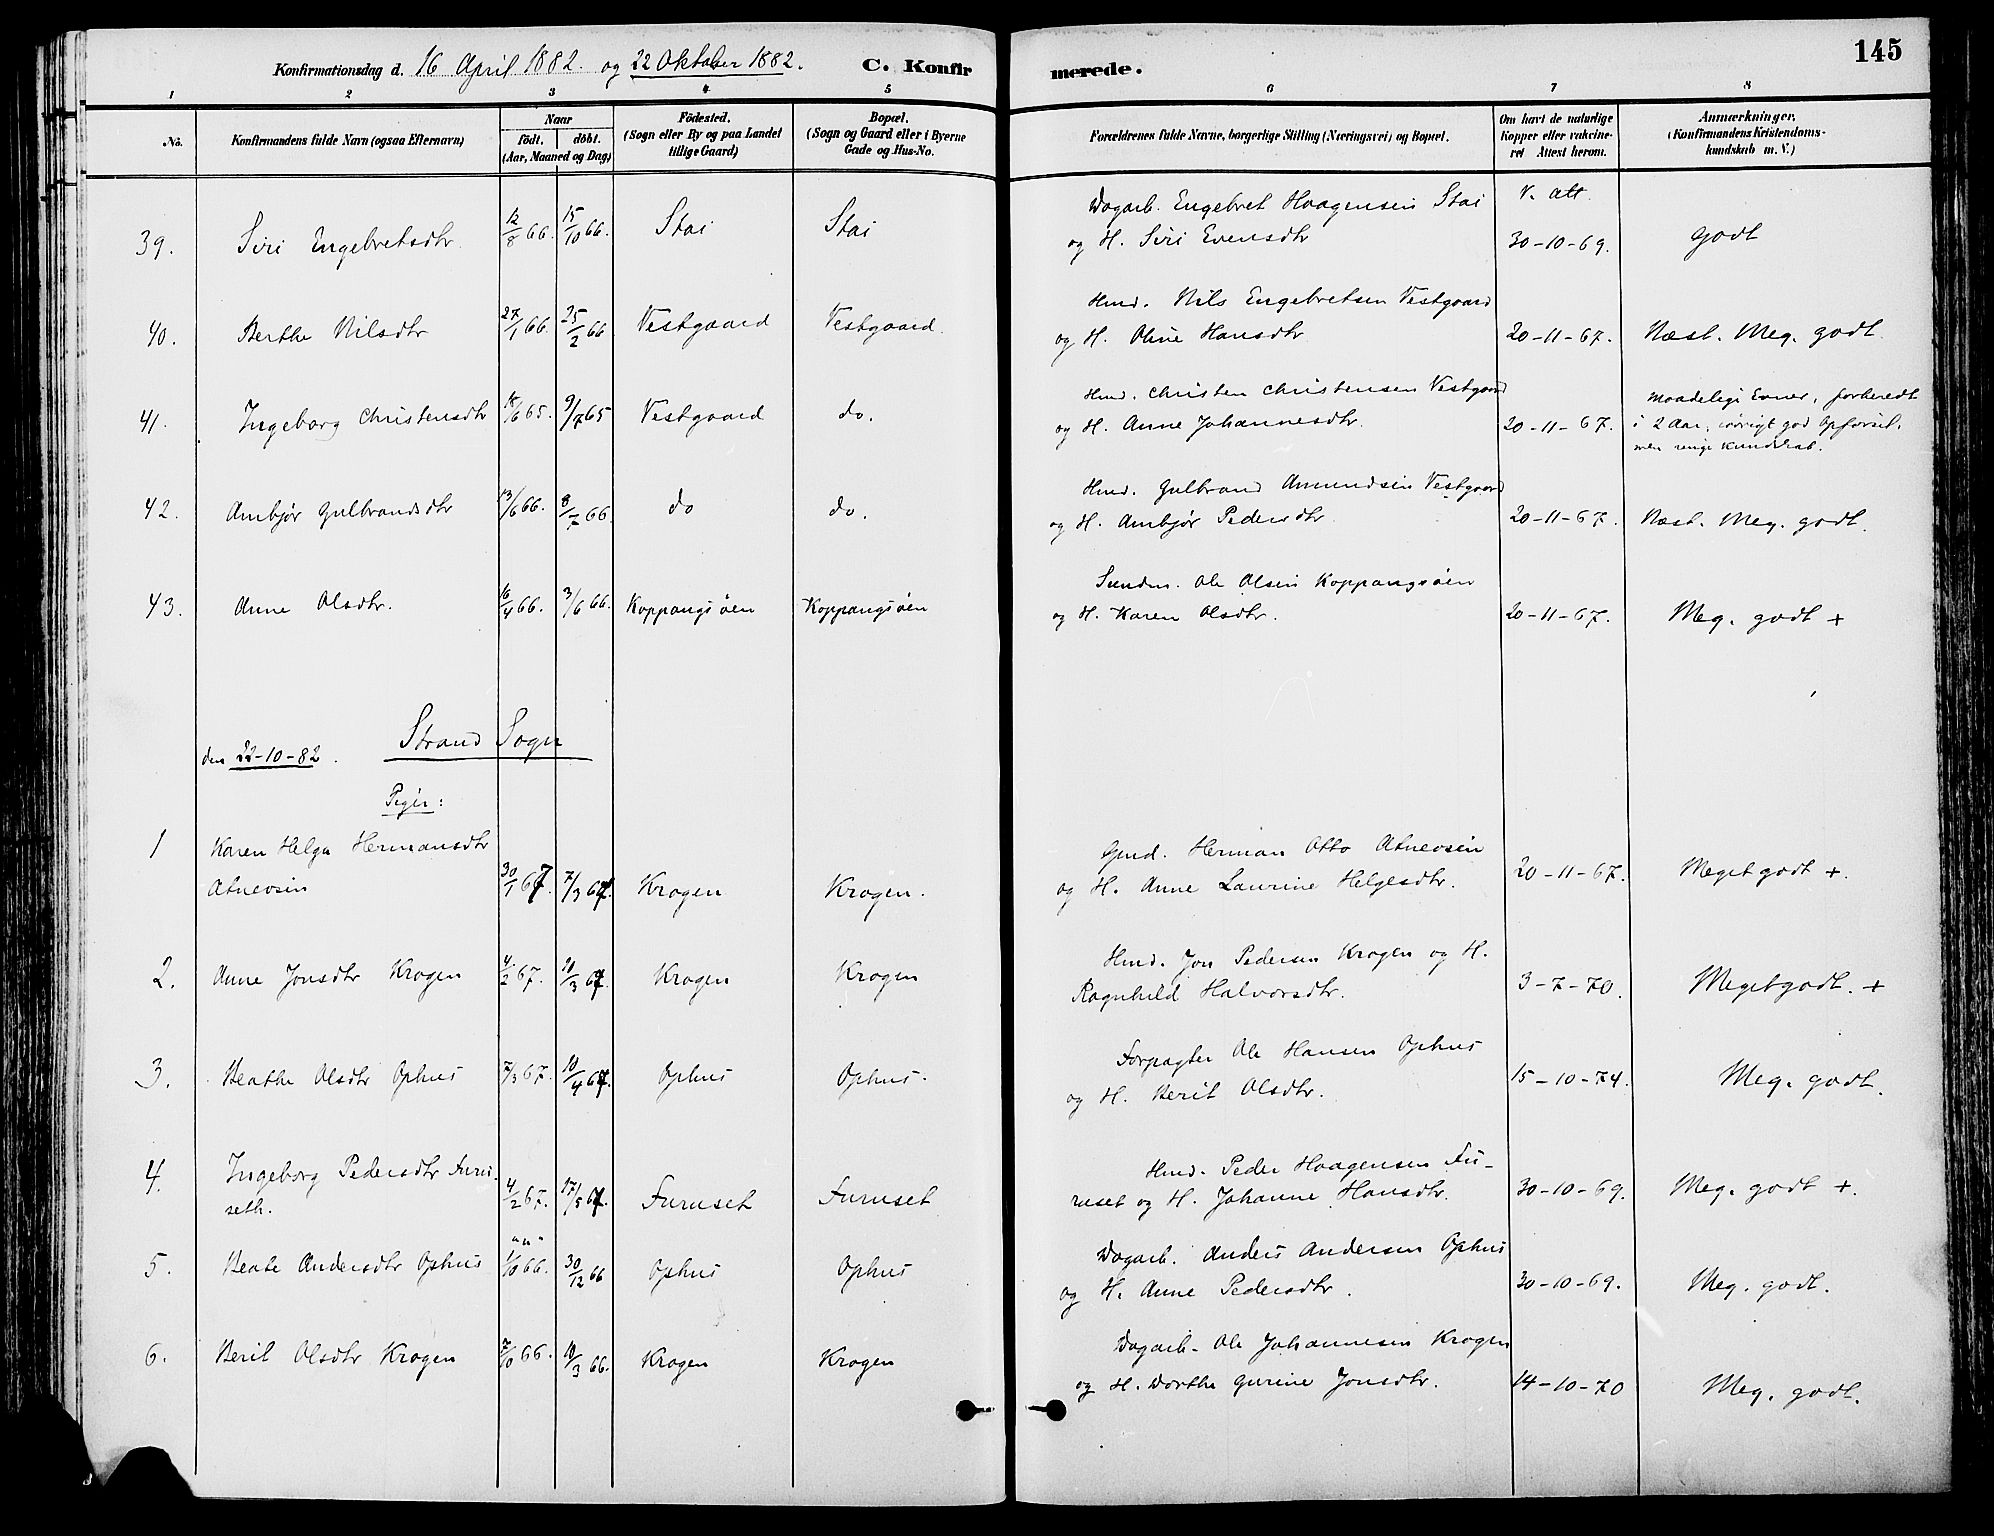 145
Konfirmationsdag d. 16 April 1882. og 22 Oktober 1882. C. Konfirmerede.
1 2 3 4 5 6 7 8
No. | Konfirmandens fulde Navn (ogsaa Efternavn) | Naar født. døbt. (Aar, Maaned og Dag) | Fødested. (Sogn eller By og paa Landet tillige Gaard) | Bopæl. (Sogn og Gaard eller i Byerne Gade og Hus-No. | Forældrenes fulde Navne, borgerlige Stilling (Næringsvei) og Bopæl. | Om havt de naturlige Kopper eller vakcineret Attest herom. | Anmærkninger. (Konfirmandens Kristendomskundskab m. V.)
39. Siri Engebretsdtr 12/8 66. 15/10 66. Stai Stai Dagarb. Engebret Haagensen Stai V. att.
og H. Siri Evensdtr 30-10-69. godt
40. Berthe Nilsdtr 27/1 66. 25/2 66 Vestgaard Vestgaard. Hmd. Nils Engebretsen Vestgaard
og H. Oline Hansdtr 20-11-67. Næst. Meg. godt.
41. Ingeborg Christensdtr /6 65. 9/7 65 Vestgaard do. Hmd. Christen Christensen Vestgaard Maadelige Evner, forberedt
og H. Anne Johannesdtr. 20-11-67. i 2 Aar, iøvrigt god Opførsel,
men ringe Kundskab.
42. Ambjør Gulbrandsdtr 13/6 66. 8/7 66. do do. Hmd. Gulbrand Amundsen Vestgaard
og H. Ambjør Pedersdtr 20-11-67. Næst. Meg. godt.
43. Anne Olsdtr. 16/4 66. 3/6 66. Koppangsøen Koppangsøen Ole Olsen Koppangsøen
og H. Karen Olsdtr. 20-11-67. Meg. godt +
den 22-10-82. Strand Sogn
Piger:
1 Karen Helga Hermansdtr Gmd. Herman Otto Atneosen
Atneosen 30/1 67 7/3 67. Krogen Krogen. og H. Anne Laurine Helgesdtr. 20-11-67. Meget godt +.
2. Anne Jonsdtr Krogen 4/2 67. 10/3 67. Krogen Krogen Hmd. Jon Pedersen Krogen og H.
Ragnhild Halvorsdtr. 3-7-70. Meget godt. +
3. Beathe Olsdtr Ophus 7/3 67. 10/4 67. Ophus Ophus. Forpagter Ole Hansen Ophus
og H. Berit Olsdtr. 15-10-74. Meg. godt.
4. Ingeborg Pedersdtr Furu- Hmd. Peder Haagensen Fu-
seth. 4/2 67. 17/3 67. Furuset Furuset ruset og H. Johanne Hansdtr. 30-10-69. Meg. godt +.
5. Beate Andersdtr Ophus 1/10 66. 30/12 66 Ophus Ophus Dagarb. Anders Andersen Ophus
og H. Anne Pedersdtr. 30-10-69. Meg. godt.
6. Berit Olsdtr Krogen 7/10 66. 10/3 66. Krogen Krogen Dagarb. Ole Johannesen Krogen
og H. Dorthe Gurine Jonsdtr. 14-10-70 Meg. godt.